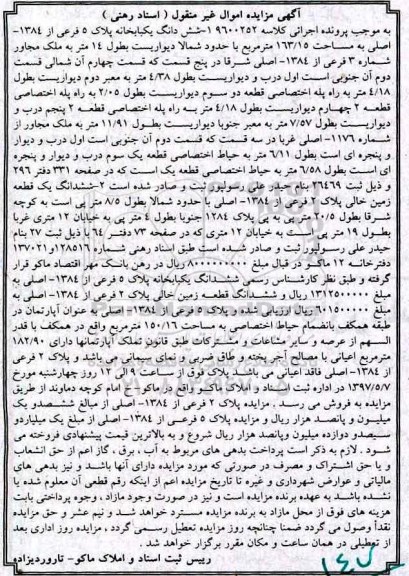 آگهی مزایده اموال غیر منقول ( اسناد رهنی )
به موجب پرونده اجرائی کلاسه ۹۶۰۰۲۵۲ ۱-شش دانگ یکبابخانه پلاک ۵ فرعی از ۱۳۸۴-
اصلی به مساحت ۱۶۳/۱۵ مترمربع با حدود شمالا دیواریست بطول ۱۴ متر به ملک مجاور
شماره ۳ فرعی از ۱۳۸۴- اصلی شرقا در پنج قسمت که قسمت چهارم آن شمالی قسمت
دوم آن جنوبی است اول درب و دیواریست بطول ۴/۳۸ متر به معبر دوم دیواریست بطول
۴/۱۸ متر به راه پله اختصاصی قطعه دو سوم دیواریست بطول ۲/۰۵ به راه پله اختصاصی
قطعه ۲ چهارم دیواریست بطول ۴/۱۸ متر به راه پله اختصاصی قطعه ۲ پنجم درب و
دیواریست بطول ۷/۵۷ متر به معبر جنوبا دیواریست بطول ۱۱/۹۱ متر به ملک مجاور از
شماره ۱۱۷۶- اصلی غربا در سه قسمت که قسمت دوم آن جنوبی است اول درب و دیوار
و پنجره ای است بطول ۶/۱۱ متر به حیاط اختصاصی قطعه یک سوم درب و دیوار و پنجره
ای است بطول ۶/۵۸ متر به حیاط اختصاصی قطعه یک است که در صفحه ۳۳۱ دفتر ۲۹۶
و ذیل ثبت ۲۶۴۶۹ بنام حیدر علی رسولپور ثبت و صادر شده است ۲-ششدانگ یک قطعه
زمین خالی پلاک ۲ فرعی از ۱۳۸۴- اصلی با حدود شمالا بطول ۸/۵ متر پی است به کوچه
شرقا بطول ۲۰/۵ متر پی به پی پلاک ۱۲۸۴ جنوبا بطول ۴ متر پی به خیابان ۱۲ متری غربا
بطول ۱۹ متر پی است به خیابان ۱۲ متری که در صفحه ۷۳ دفتر ۶۴ ذیل ثبت ۲۷ بنام
حیدر علی رسولپور ثبت و صادر شده است طبق اسناد رهنی شماره ۱۲۸۵۱۶و۱۳۷۰۲۱
دفترخانه ۱۲ ماکو در قبال مبلغ ۸۰۰۰۰۰۰۰۰ ریال در رهن بانک مهر اقتصاد ماکو قرار
گرفته و طبق نظر کارشناس رسمی ششدانگ یکبابخانه پلاک ۵ فرعی از ۱۳۸۴- اصلی به
مبلغ ۱۳۱۲۵۰۰۰۰۰ ریال و ششدانگ قطعه زمین خالی پلاک ۲ فرعی از ۱۳۸۴- اصلی به
مبلغ ۶۰۱۵۰۰۰۰۰ ریال ارزیابی شده و پلاک ۵ فرعی از ۱۳۸۴- اصلی به عنوان آپارتمان در
طبقه همکف بانضمام حیاط اختصاصی به مساحت ۱۵۰/۱۶ مترمربع واقع در همکف با قدر
السهم از عرصه و سایر مشاعات و مشترکات طبق قانون تملک آپارتمانها دارای ۱۸۲/۹۰
مترمربع اعیانی با مصالح آجر پخته و طاق ضربی و نمای سیمانی می باشد و پلاک ۲ فرعی
از ۱۳۸۴- اصلی فاقد اعیانی می باشد پلاک فوق از ساعت ۹ الی ۱۲ روز چهارشنبه مورخ
۱۳۹۷/۵/۷ در اداره ثبت اسناد و املاک ماکو واقع در ماکو- خ امام کوچه دماوند از طریق
مزایده به فروش می رسد . مزایده پلاک ۲ فرعی از ۱۳۸۴- اصلی از مبالغ ششصدو یک
میلیون و پانصد هزار ریال و مزایده پلاک ۵ فرعی از ۱۳۸۴- اصلی از مبلغ یک میلیاردو
سیصدو دوازده میلیون وپانصد هزار ریال شروع و به بالاترین قیمت پیشنهادی فروخته می
شود . لازم به ذکر است پرداخت بدهی های مربوط به آب ، برق ، گاز اعم از حق انشعاب
و یا حق اشتراک و مصرف در صورتی که مورد مزایده دارای آنها باشد و نیز بدهی های
مالیاتی و عوارض شهرداری و غیره تا تاریخ مزایده اعم از اینکه رقم قطعی آن معلوم شده یا
نشده باشد به عهده برنده مزایده است و نیز در صورت وجود مازاد ، وجوه پرداختی بابت
هزینه های فوق از محل مازاد به برنده مزایده مسترد خواهد شد و نیم عشر و حق مزایده
نقداً وصول می گردد ضمنا چنانچه روز مزایده تعطیل رسمی گردد ، مزایده روز اداری بعد
از تعطیلی در همان ساعت و مکان مقرر برگزار خواهد شد .
رییس ثبت اسناد و املاک ماکو- تاروردیزاده